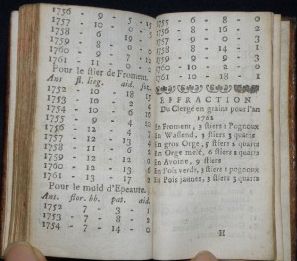 1756 - 9 - 5 - 15
1757 - 10 - 0 - 5
1758 - 6 - 19 -
1759 - 8 - 0 - 
1760 - 9 - 7 - 
1761 - 11 - 0 - 
Pour le stier de Froment.
Ans fl. lieg. aid. 
1752 - 10 - 18 - 
1753 - 10 - 2 - 
1754 - 10 - 16 - 
1755 - 9 - 4 - 
1756 - 12 - 4 - 
1757 - 12 - 7 - 
1758 - 11 - 6 - 4
1759 - 12 - 12 - 
1760 - 12 - 0 - 6
1761 - 13 - 17 - 2
Pour le muid d'Epeautre.
Ans. flor. bb. pat. aid.
1752 - 7 - 3 - 1
1753 - 7 - 8 - 2
1754 - 7 - 14 - 0
1755 - 6 - 8 - 0
1756 - 8 - 16 - 2
1757 - 9 - 0 - 3
1758 - 8 - 14 - 1
1759 - 9 - 0 - 3
1760 - 10 - 2 - 0
1761 - 10 - 18 - 1
EFFRACTION
Du Clergé en grains pour l'an
1762
En Froment, 3 stiers 1 Pognoux
En Wassend, 3 stiers 3 quarts
En gros Orge, 5 stiers 1 quarts
En Orge meslé, 6 stiers 1 quarts
En Avoine, 9 stiers
En Pois verds, 3 stiers 1 pognoux
En Pois jaunes, 3 stiers 3 quarts
H